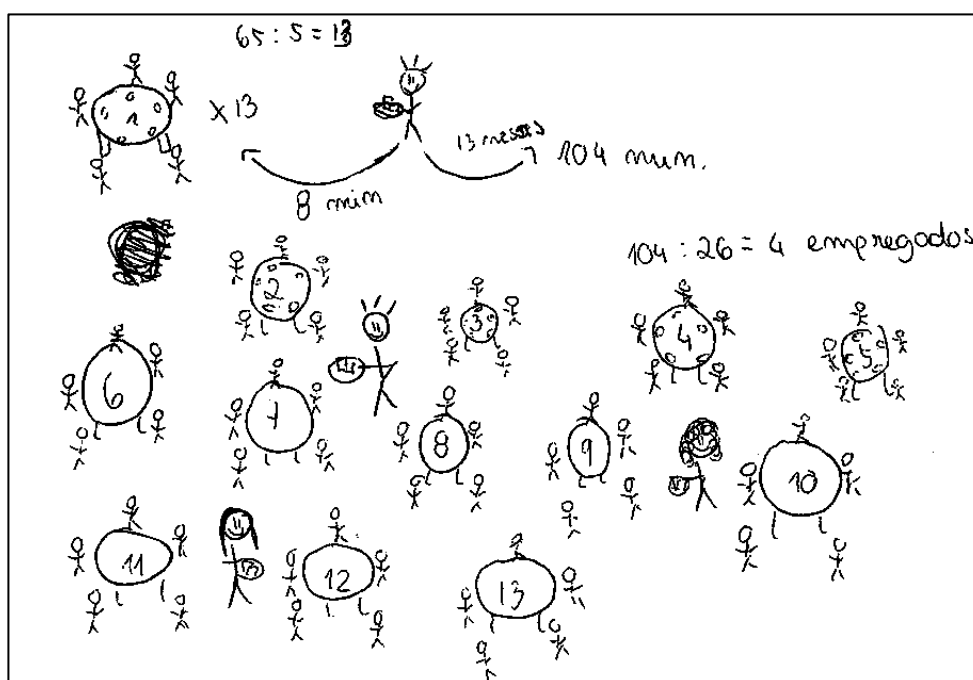 65 : 5 = 13
1
x 13
13 mesas
104 mun.
8 mim
104 : 26 = 4 empregados
2
3
4
5
6
7
8
9
10
11
12
13